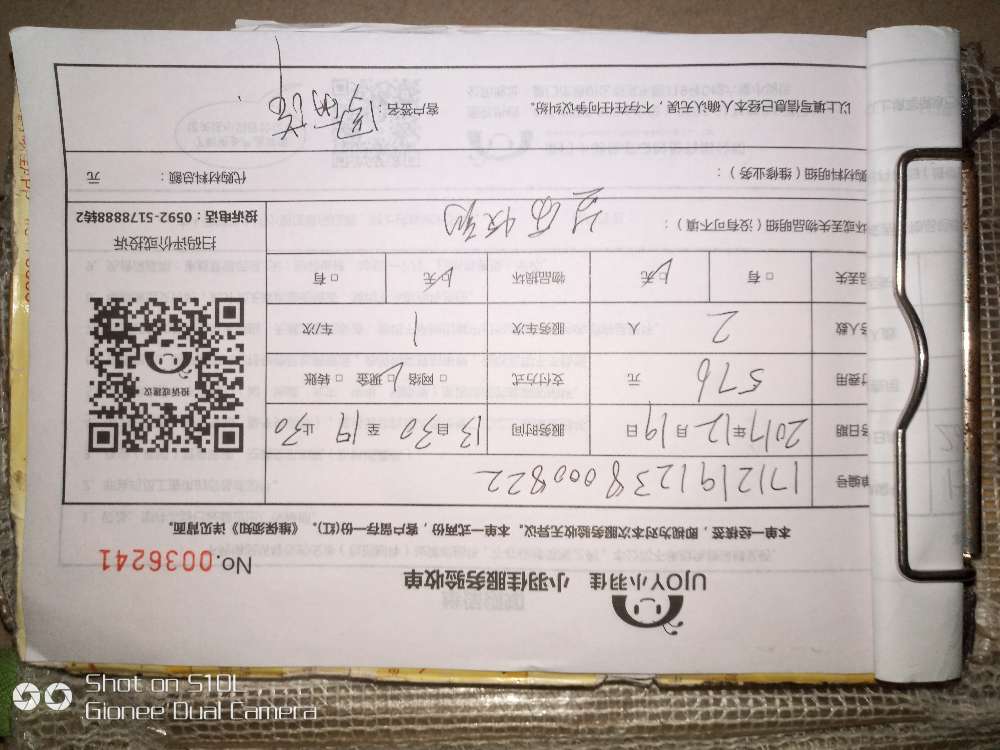 UJOY小羽佳 小羽佳服务验收单
No.0036241
本单一经核签，即视为对本次服务验收无异议。本单一式两份，客户留存一份(红)。《维保须知》详见背面。
单编号 1712191238000822
务日期 2017年12月19日 服务时间 13时30至19时30止
付费用 576 元 支付方式 □网络 ☑现金 □转账
务人数 2 人 服务车次 1 车/次
品丢失 □有 ☑无 物品损坏 ☑无 □有
坏或丢失物品明细（没有可不填）：
扫码评价或投诉
投诉电话：0592-5178888转2
投诉或建议
购材料明细（维修业务）：
代购材料总额： 元
以上填写信息已经本人确认无误，不存在任何争议纠纷。
客户签名：
Shot on S10L
Gionee Dual Camera